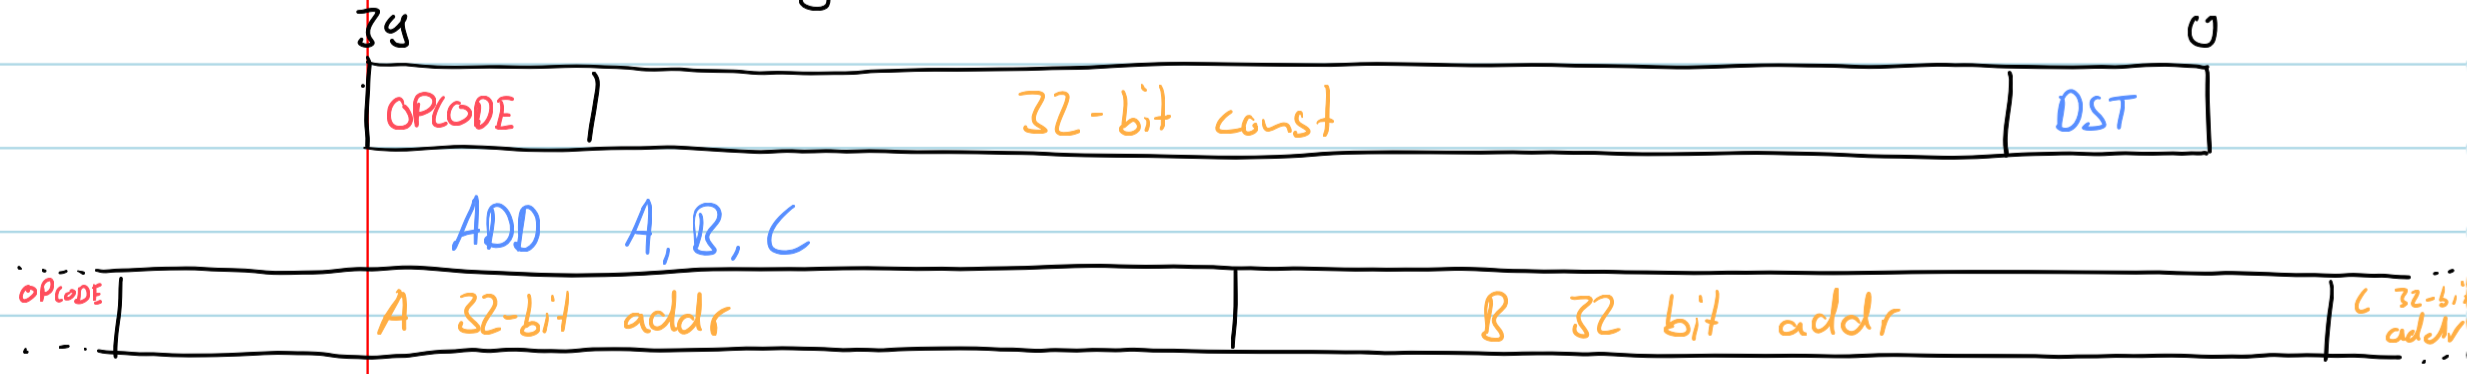 39 0
OPCODE 32-bit const DST
ADD A, B, C
OPCODE A 32-bit addr B 32 bit addr C 32-bit
addr